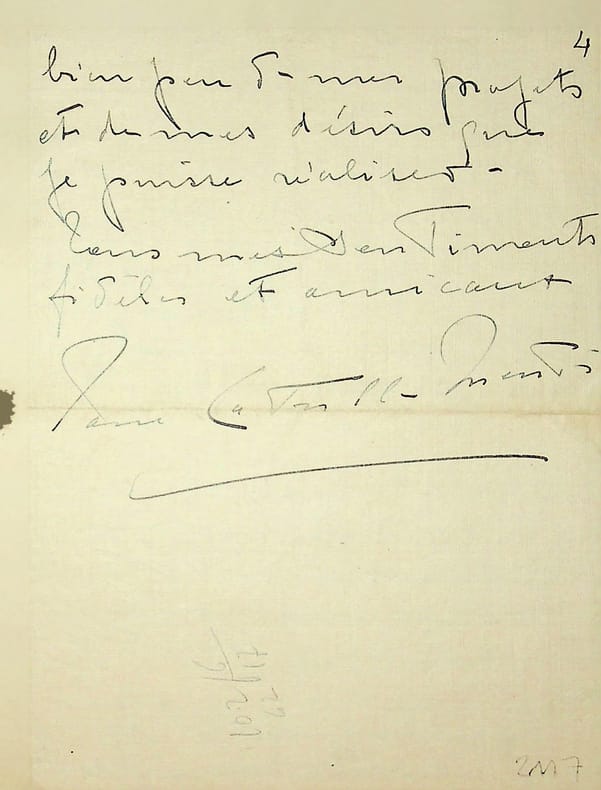 4
bien peu de mes projets
et de mes désirs que
je puisse réaliser -
Tous mes sentiments
fidèles et amicaux
Jane Catulle-Mendès
2117